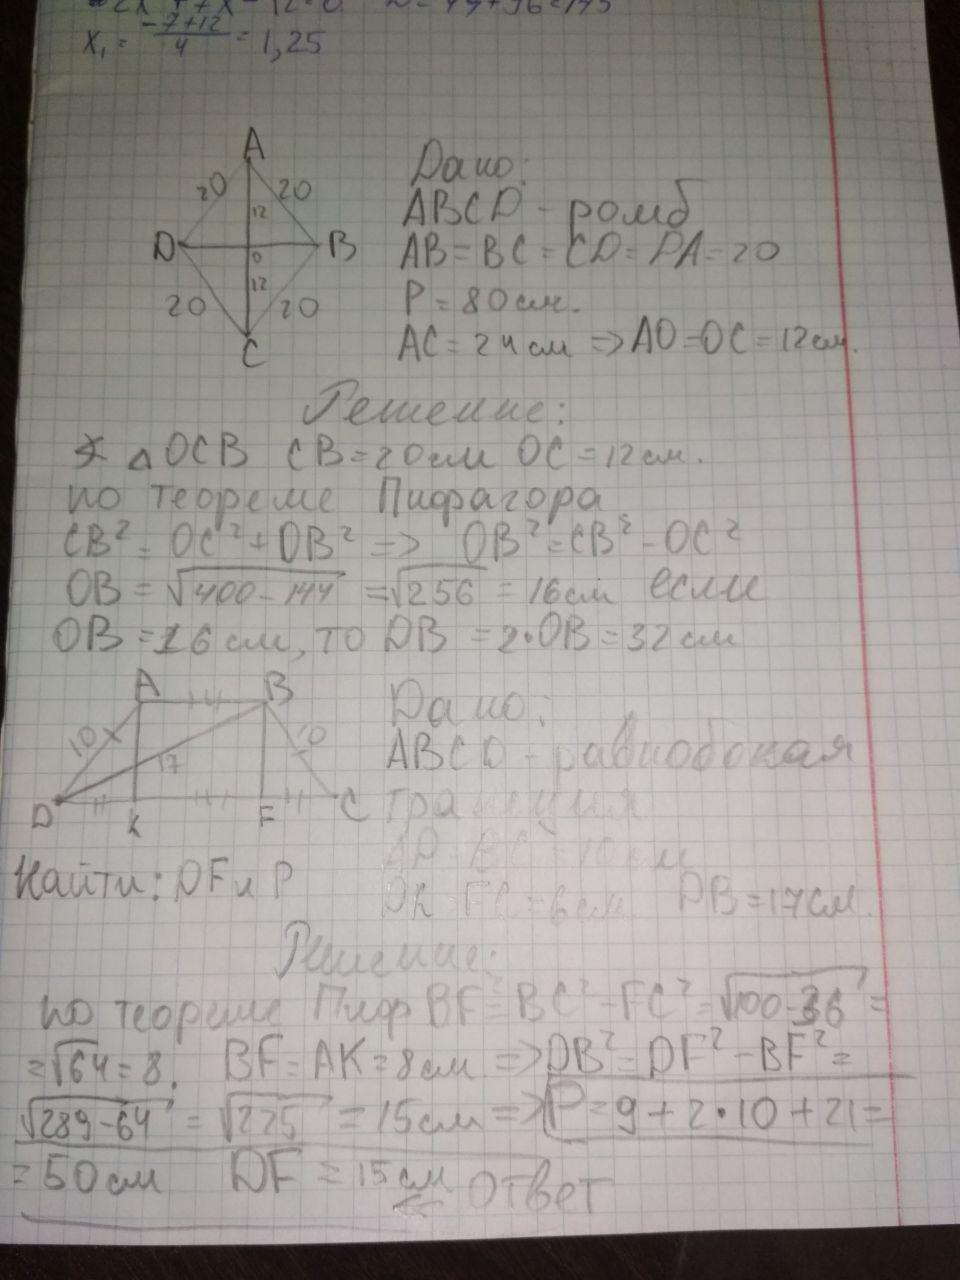 X₁ = (-7+12)/4 = 1,25
A
20 20
12
D O B
12
20 20
C
Дано:
ABCD - ромб
AB = BC = CD = DA = 20
P = 80 см.
AC = 24 см => AO = OC = 12 см.
Решение:
△OCB CB = 20 см OC = 12 см.
по теореме Пифагора
CB² = OC² + OB² => OB² = CB² - OC²
OB = √400-144 = √256 = 16 см если
OB = 16 см, то DB = 2·OB = 32 см
A B
10 10
17
D K F C
Дано:
ABCD - равнобокая
трапеция
DK = FC = 6 см DB = 17 см.
Найти: DF и P
Решение:
по теореме Пиф BF² = BC² - FC² = √100-36 =
= √64 = 8. BF = AK = 8 см => DB² = DF² - BF² =
√289-64 = √225 = 15 см => P = 9 + 2·10 + 21 =
= 50 см DF = 15 см Ответ